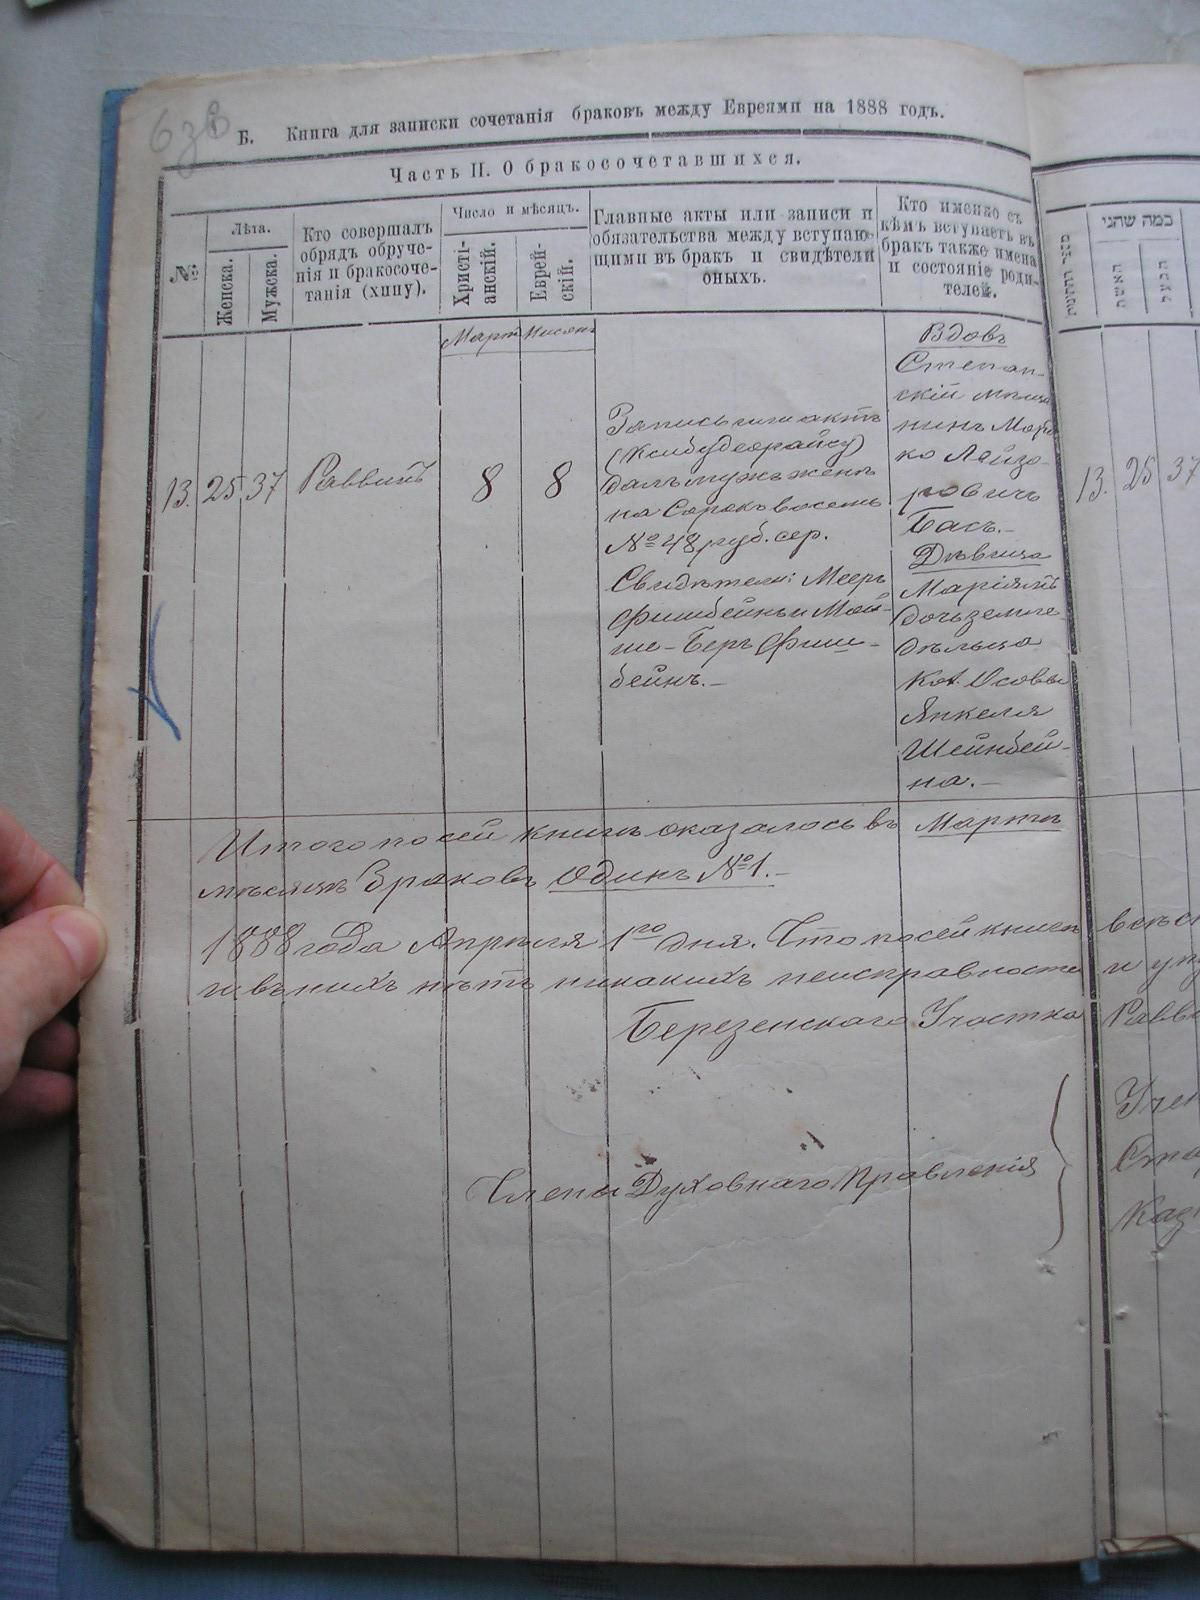 638
Б. Книга для записки сочетанія браковъ между Евреями на 1888 годъ.
Часть II. О бракосочетавшихся.
№
Лѣта.
Женска.
Мужска.
Кто совершалъ
обрядъ обруче-
нія и бракосоче-
танія (хипу).
Число и мѣсяцъ.
Христі-
анскій.
Еврей-
скій.
Главные акты или записи и
обязательства между вступаю-
щими въ бракъ и свидѣтели
оныхъ.
Кто именно съ
кѣмъ вступаетъ въ
бракъ также имена
и состояніе роди-
телей.
כמה שהני
האשה
הבעל
Мартъ
Нисанъ
13.
25
37
Раввинъ
8
8
Запись или актъ
(Ксибудеорайсу)
далъ мужъ женѣ
на Сорокъ восемь
№ 48 руб. сер.
Свидѣтели: Мееръ
Фишбейнъ и Мой-
ше-Беръ Фиш-
бейнъ.-
Вдовъ
Степан-
скій мѣща
нинъ Мор
ко Лейзо-
ровичъ
Басъ.-
Дѣвица
Маріямъ
дочь земле-
дѣльца
кол. Осовы
Янкеля
Шейнбей-
на.-
13.
25
37
Итого по сей книгѣ оказалось въ Мартѣ
мѣсяцѣ Браковъ Одинъ №1.-
1888 года Апрѣля 1го дня. Что по сей книгѣ
и въ нихъ нѣтъ никакихъ неисправносте
и уп
Березенскаго Участка Равв
Члены Духовнаго Правленія
Учен
Ста
Каз